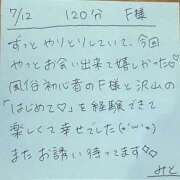 7/12 120分 F様
ずっとやりとりしていて、今回
やっとお会い出来て嬉しかった♡
風俗初心者のF様と沢山の
「はじめて♡」を経験できて
楽しくて幸せでした(*´ω`*)
またお誘い待ってます♡
みと